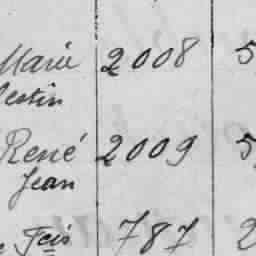 Marie 2008 5
lestin
René 2009 5
Jean
Fçis 787 2